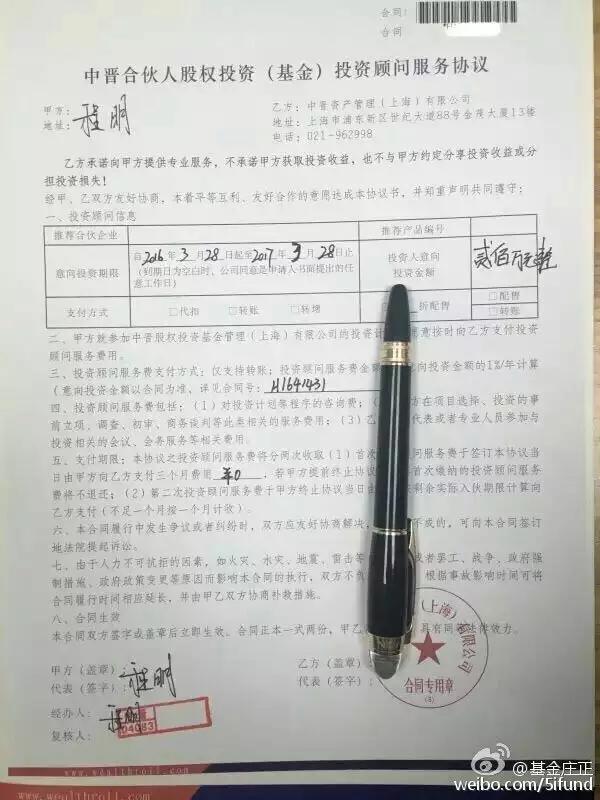 合同:
合同
中晋合伙人股权投资（基金）投资顾问服务协议
甲方: 程明
地址:
乙方: 中晋资产管理（上海）有限公司
地址: 上海市浦东新区世纪大道88号金茂大厦13楼
电话: 021-962998
乙方承诺向甲方提供专业服务，不承诺甲方获取投资收益，也不与甲方约定分享投资收益或分
担投资损失！
经甲、乙双方友好协商，本着平等互利、友好合作的意愿达成本协议书，并知重声明共同遵守：
一、投资顾问信息
推荐合伙企业 推荐产品编号
意向投资期限 自2016年3月28日起至2017年3月28日止
(到期日为空白时，公司同意是申请人书面提出的任
意工作日)
投资人意向
投资金额
贰佰万元整
支付方式 □代扣 □转账 □转增 折配售 □配售
□转账
二、甲方就参加中晋股权投资基金管理（上海）有限公司的投资计 愿意按时向乙方支付投资
顾问服务费用。
三、投资顾问服务费支付方式：仅支持转账；投资顾问服务费金额 向投资金额的1%/年计算
(意向投资金额以合同为准，详见合同号: H1641431
四、投资顾问服务费包括：(1) 对投资计划等程序的咨询费；(2 方在项目选择、投资的事
前立项、调查、初审、商务谈判等此类相关的服务费用；(3) 乙 代表或者专业人员参加与
投资相关的会议、会务服务等相关费用。
五、支付期限：本协议之投资顾问服务费将分两次收取 (1) 首次 问服务费于签订本协议当
日由甲方向乙方支付三个月费用 ¥0 ，若甲方提前终止协议 首次缴纳的投资顾问服务
费将不退还；(2) 第二次投资顾问服务费于甲方终止协议当日由 剩余实际入伙期限计算向
乙方支付 (不足一个月按一个月计收)。
六、本合同履行中发生争议或者纠纷时，双方应友好协商解决， 不成的，可向本合同签订
地法院提起诉讼。
七、由于人力不可抗拒的因素，如火灾、水灾、地震、雷击等 或者罢工、战争、政府强
制措施、政府政策变更等原因而影响本合同的执行，双方不负 根据事故影响时间可将
合同履行时间相应延长，并由甲乙双方协商补救措施。
八、合同生效
本合同双方签字或盖章后立即生效。合同正本一式两份，甲乙 具有同等法律效力。
甲方（盖章） 乙方（盖章）
代表（签字）: 程明 代表（签字）:
（上海）有限公司
合同专用章
(8)
经办人: 程明
04083
复核人:
www.wealthroll.com
www.wealthroll.com
@基金庄正
weibo.com/5ifund